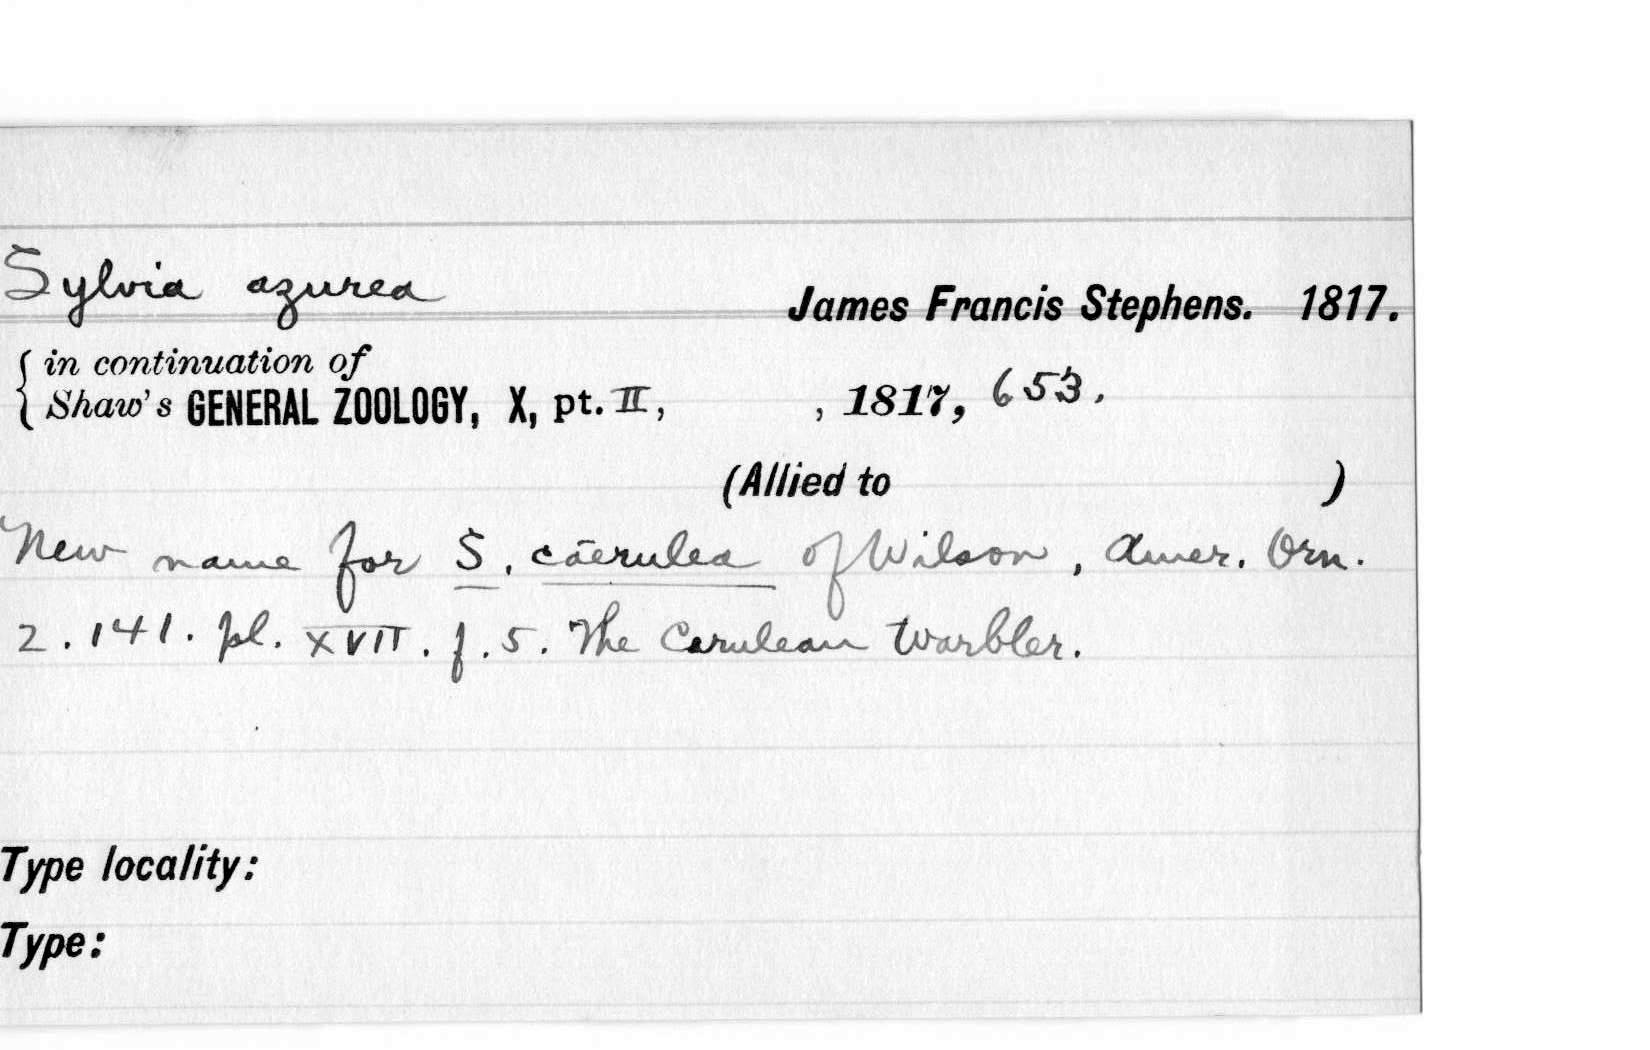 Sylvia azurea
James Francis Stephens. 1817.
in continuation of
Shaw's GENERAL ZOOLOGY, X, pt. II, , 1817, 653.
(Allied to )
New name for S. caerulea of Wilson, Amer. Orn.
2. 141. pl. XVII. f. 5. The Cerulean Warbler.
Type locality:
Type: